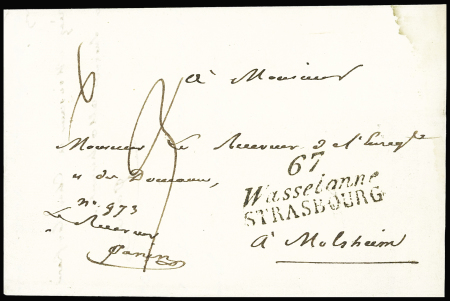 à Monsieur
Monsieur Le Receveur de l'Enregte
& des Domaines,
67
Wasselonne
STRASBOURG
No. 973
Le Receveur
à Molsheim